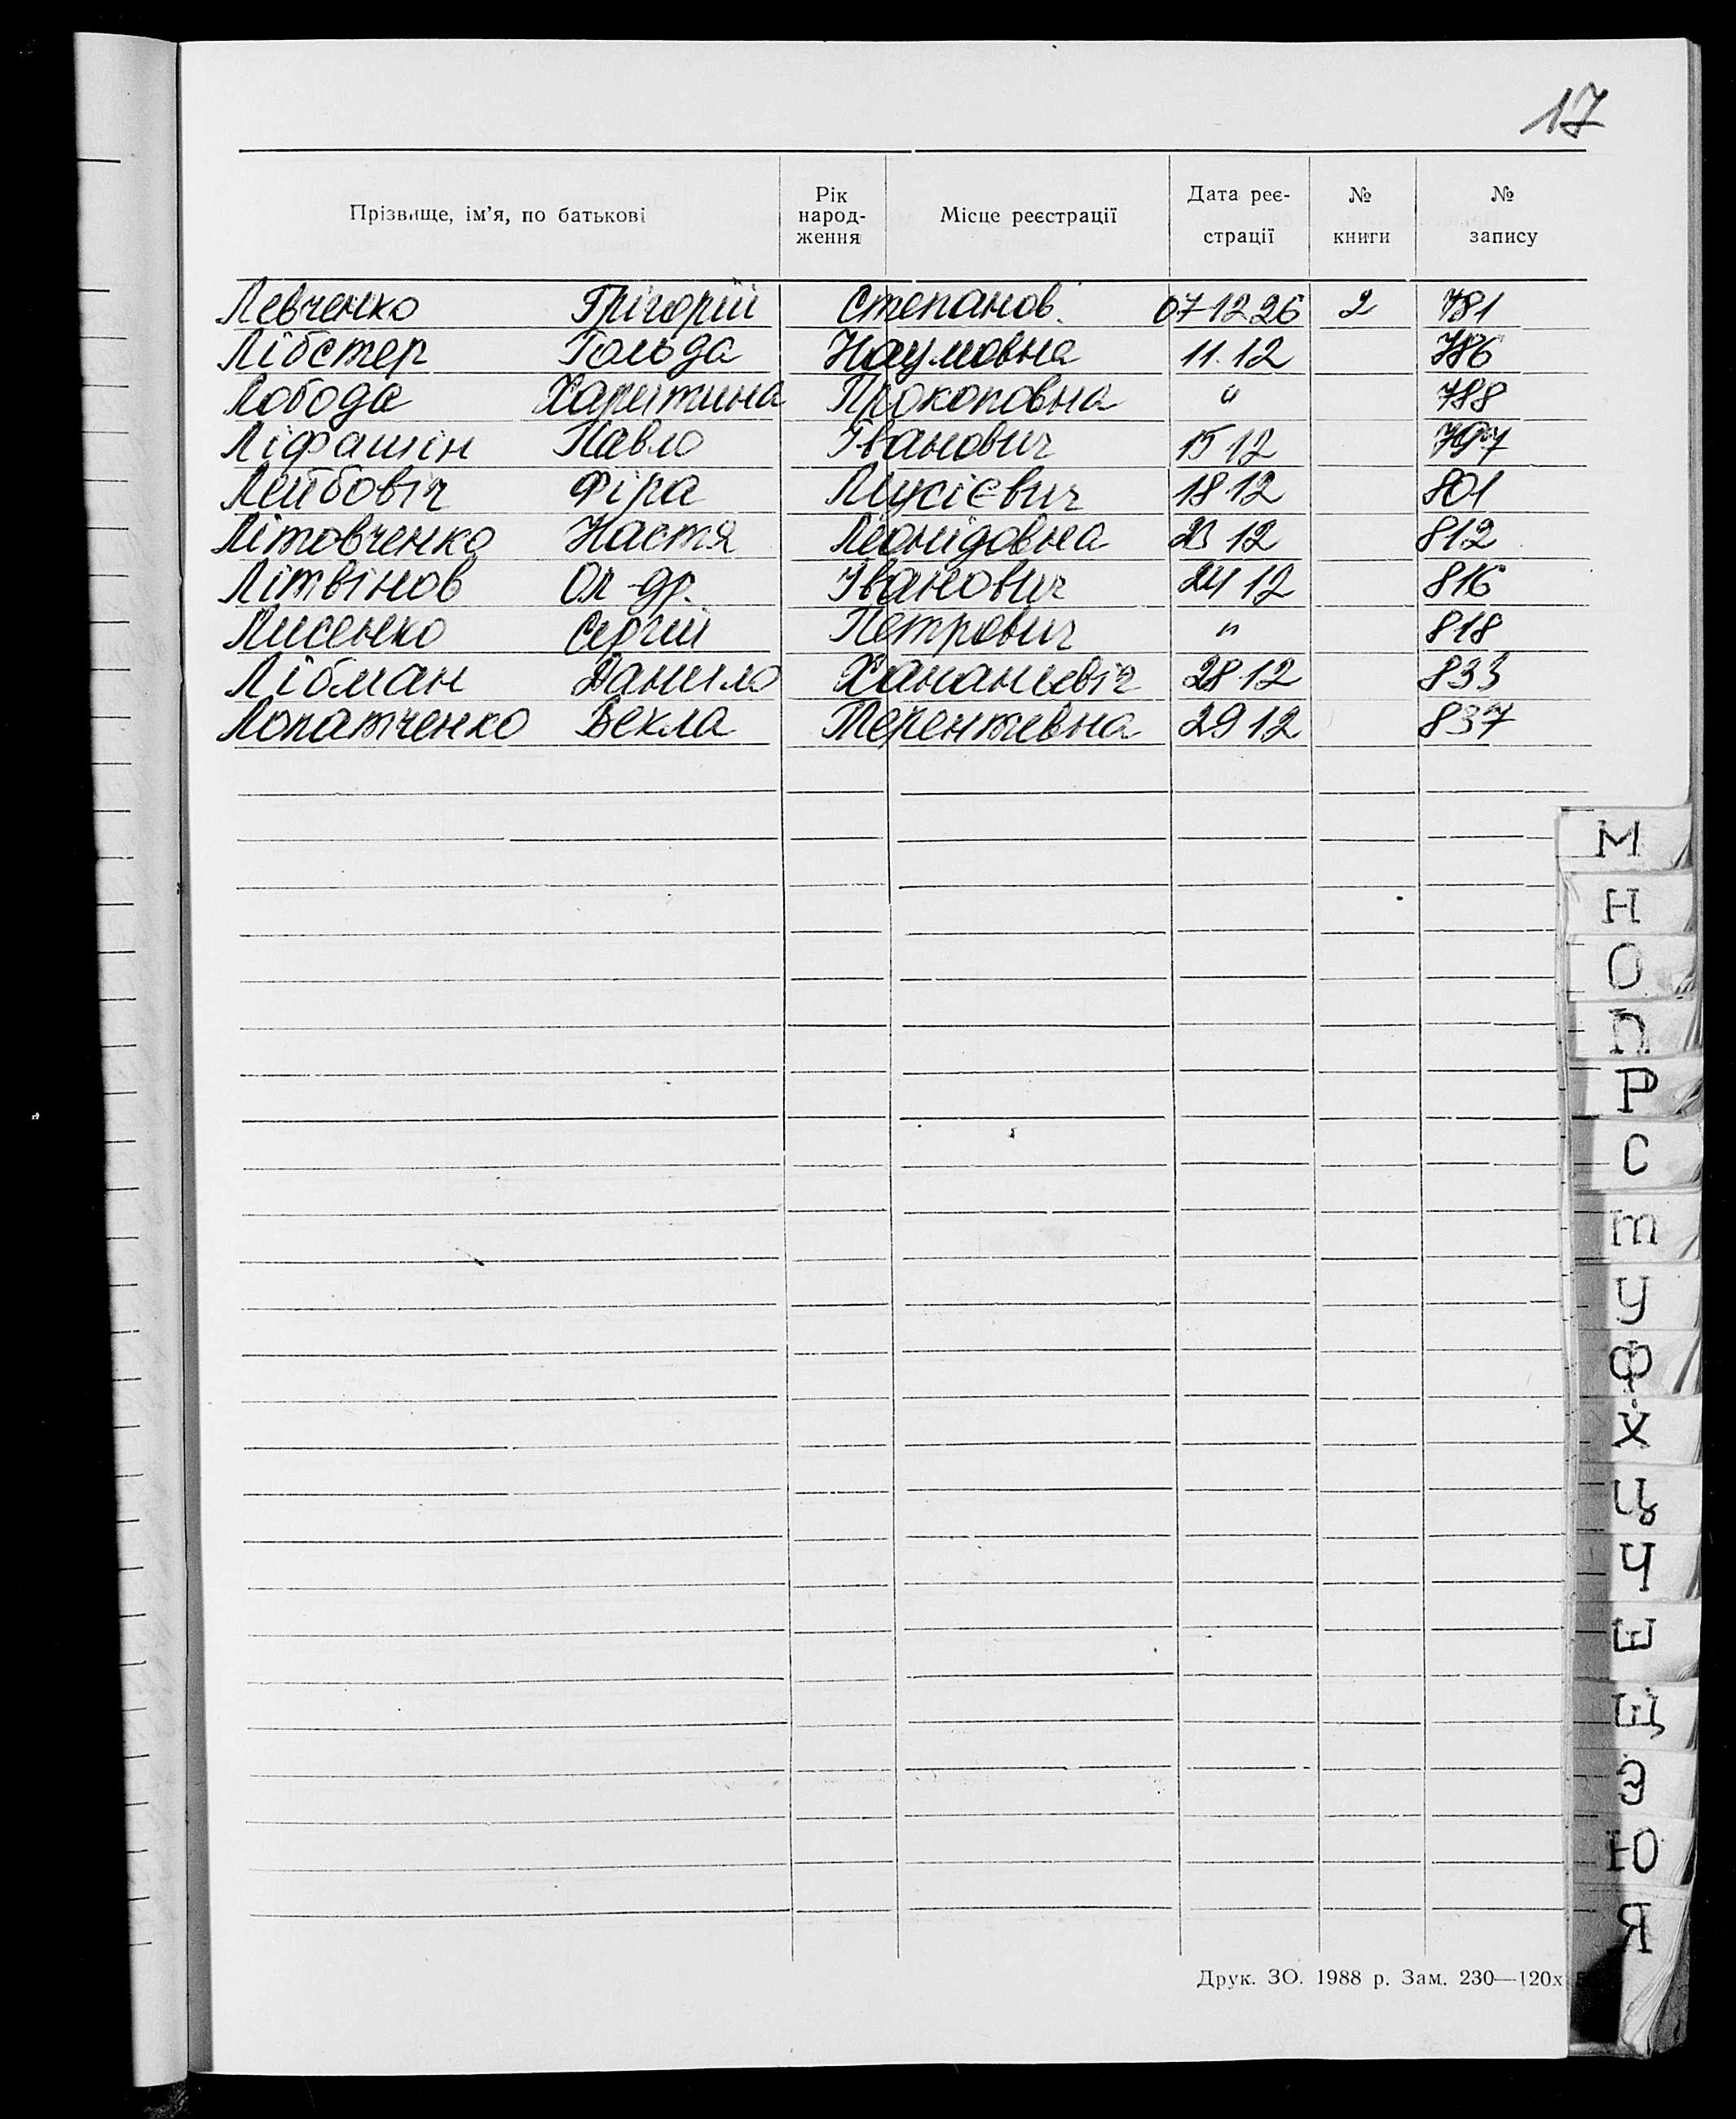 17
Прізвище, ім'я, по батькові Рік народ- ження Місце реєстрації Дата реє- страції № книги № запису
Левченко Грігорій Степанов. 07 12 26 2 781
Лібстер Гольда Наумовна 11.12 786
Лобода Харитина Прокоповна " 788
Ліфашін Павло Іванович 15 12 797
Лейбовіч Фіра Мусієвич 18 12 801
Літовченко Настя Леонідовна 23 12 812
Літвінов Ол-др. Іванович 24 12 816
Лисенко Сергій Петрович " 818
Лібман Данило Хананиевіч 28 12 833
Лопатченко Векла Терентевна 29 12 837
М
Н
О
П
Р
С
т
У
Ф
Х
Ц
Ч
Ш
Щ
Э
Ю
Я
Друк. ЗО. 1988 р. Зам. 230—120х